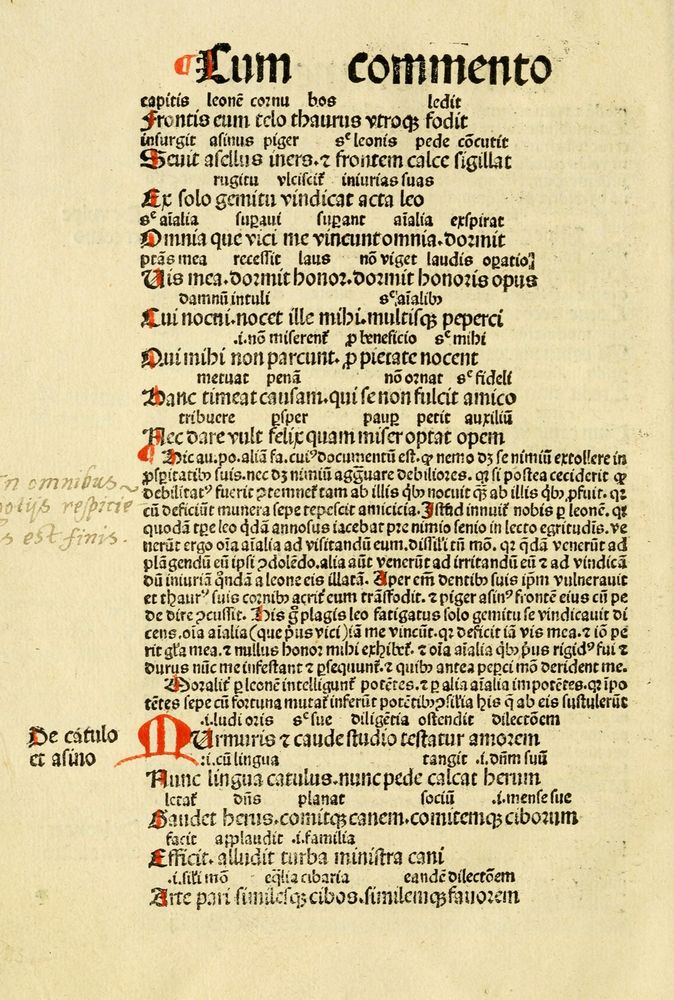 ¶ Cum commento
capitis leonē cornu bos ledit
Frontis eum telo thaurus vtroqꝫ fodit
insurgit asinus piger sꝫ leonis pede cōcutit
Seuit asellus iners. ⁊ frontem calce sigillat
rugitu vlciscit̃ iniurias suas
Ex solo gemitu vindicat acta leo
sꝫ aīalia suꝑaui suꝑant aīalia exspirat
Omnia que vici me vincunt omnia. dormit
ptās mea recessit laus nō viget laudis oꝑatioī
Uis mea. dormit honor. dormit honoris opus
damnū intuli sꝫ aīalibꝰ
Cui nocui. nocet ille mihi. multisqꝫ peperci
.i. nō miserent̃ ꝓ beneficio sꝫ mihi
Qui mihi non parcunt. ꝓ pietate nocent
metuat penā nō ornat sꝫ fideli
Hanc timeat causam. qui se non fulcit amico
tribuere ꝓsper pauꝑ petit auxiliū
Nec dare vult felix quam miser optat opem
¶ Hic au. po. aliā fa. cuiꝰ documentū est. ꝙ nemo dꝫ se nimiū extollere in
ꝓsꝑitatibꝰ suis. nec dꝫ nimiū aggͣuare debiliores. qꝛ si postea ceciderit ꝙ
debilitatꝰ fuerit ꝯtemnet̃ tam ab illis qͥbꝰ nocuit qͣꝫ ab illis qͥbꝰ ꝓfuit. qꝛ
cū deficiūt munera sepe tepescit amicicia. Istud innuit nobis ꝑ leonē. qꝛ
quodā tꝑe leo qͥdā annosus iacebat pre nimio senio in lecto egritudīs. ve
nerūt ergo oīa aīalia ad visitandū eum. dissili tn̄ mō. qꝛ qͥdā venerūt ad
plāgendū eū ipsi ꝯdolēdo. alia aūt venerūt ad irritandū eū ⁊ ad vindicā
dū iniuriā qͦndā a leone eis illatā. Aper em̄ dentibꝰ suis ip̄m vulnerauit
et thaurꝰ suis cornibꝰ acrit̃ eum trāsfodit. ⁊ piger asinꝰ frontē eius cū pe
de dire ꝯcussit. His gͦ plagis leo fatigatus solo gemitu se vindicauit di
cens. oīa aīalia (que pͥus vici) iā me vincūt. qꝛ deficit iā vis mea. ⁊ iō pe
rit gl̄a mea. ⁊ nullus honor mihi exhibet̃. ⁊ oīa aīalia qͥbꝰ pͥus rigidꝰ fui ⁊
durus nūc me infestant ⁊ ꝑsequunt̃. ⁊ quibꝰ antea peꝑci mō derident me.
Moralit̃ ꝑ leonē intelligunt̃ potētes. ⁊ ꝑ alia aīalia impotētes. qꝛ īpo
tētes sepe cū fortuna mutat̃ inferūt potētibꝰ ꝯsilīa his q̄ ab eis sustulerūt
In omnibus
respicie
s est finis.
.i. ludi oris sꝫ sue diligētia ostendit dilectōem
De catulo
et asino
MUrmuris ⁊ caude studio testatur amorem
.i. cū lingua tangit .i. dn̄m suū
Nunc lingua catulus. nunc pede calcat herum
letat̃ dn̄s planat sociū .i. mense sue
Gaudet herus. comitqꝫ canem. comitemqꝫ ciborum
facit applaudit .i. familia
Efficit. alludit turba ministra cani
.i. sīli mō eqͣlia cibaria eandē dilectōem
Arte pari similesqꝫ cibos. similemqꝫ fauorem